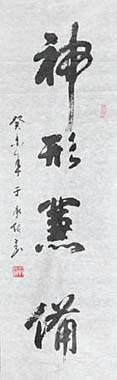 神形兼備
癸未年于京